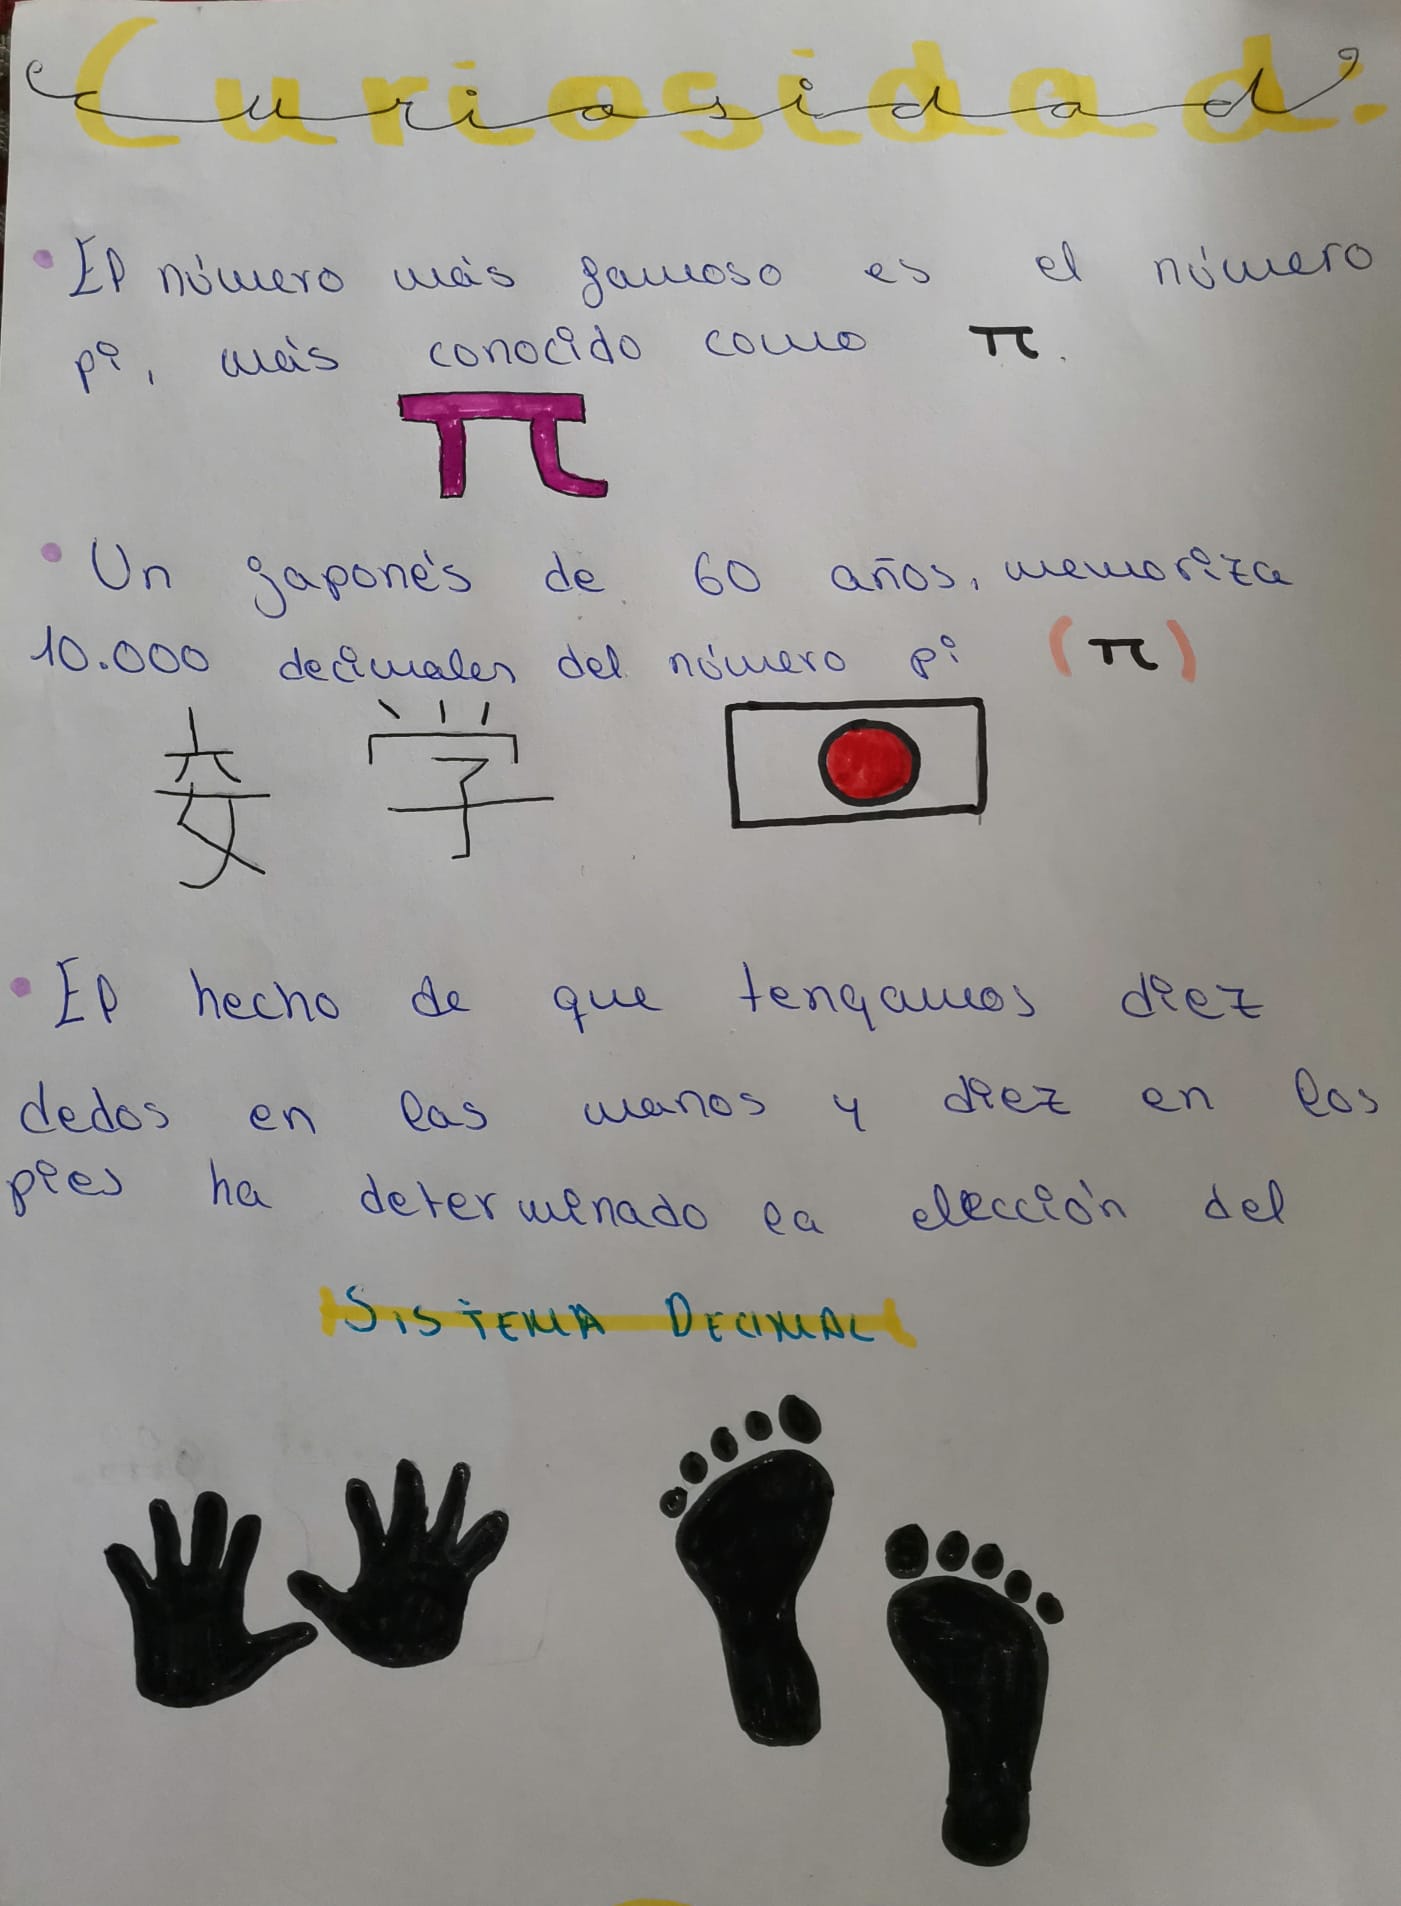 Curiosidad.
• El número más famoso es el número
pi, más conocido como π.
π
• Un japonés de 60 años, memoriza
10.000 decimales del número pi (π)
学
• El hecho de que tengamos diez
dedos en las manos y diez en los
pies ha determinado la elección del
SISTEMA DECIMAL